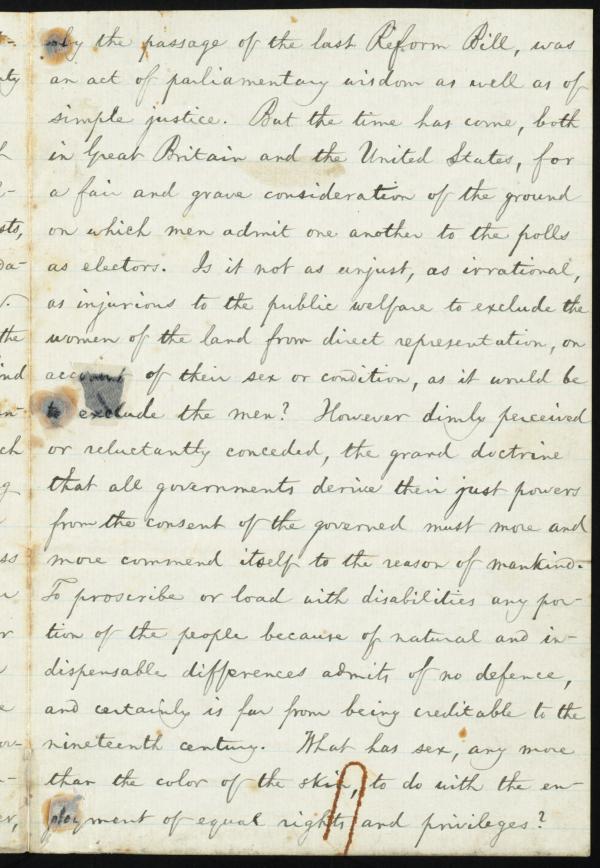 ty
sts,
the
ch
g
ss
r
only by the passage of the last Reform Bill, was
an act of parliamentary wisdom as well as of
simple justice. But the time has come, both
in Great Britain and the United States, for
a fair and grave consideration of the ground
on which men admit one another to the polls
as electors. Is it not as unjust, as irrational,
as injurious to the public welfare to exclude the
women of the land from direct representation, on
account of their sex or condition, as it would be
to exclude the men? However dimly perceived
or reluctantly conceded, the grand doctrine
that all governments derive their just powers
from the consent of the governed must more and
more commend itself to the reason of mankind.
To proscribe or load with disabilities any por-
tion of the people because of natural and in-
dispensable differences admits of no defence,
and certainly is far from being creditable to the
nineteenth century. What has sex, any more
than the color of the skin, to do with the en-
ployment of equal rights and privileges?